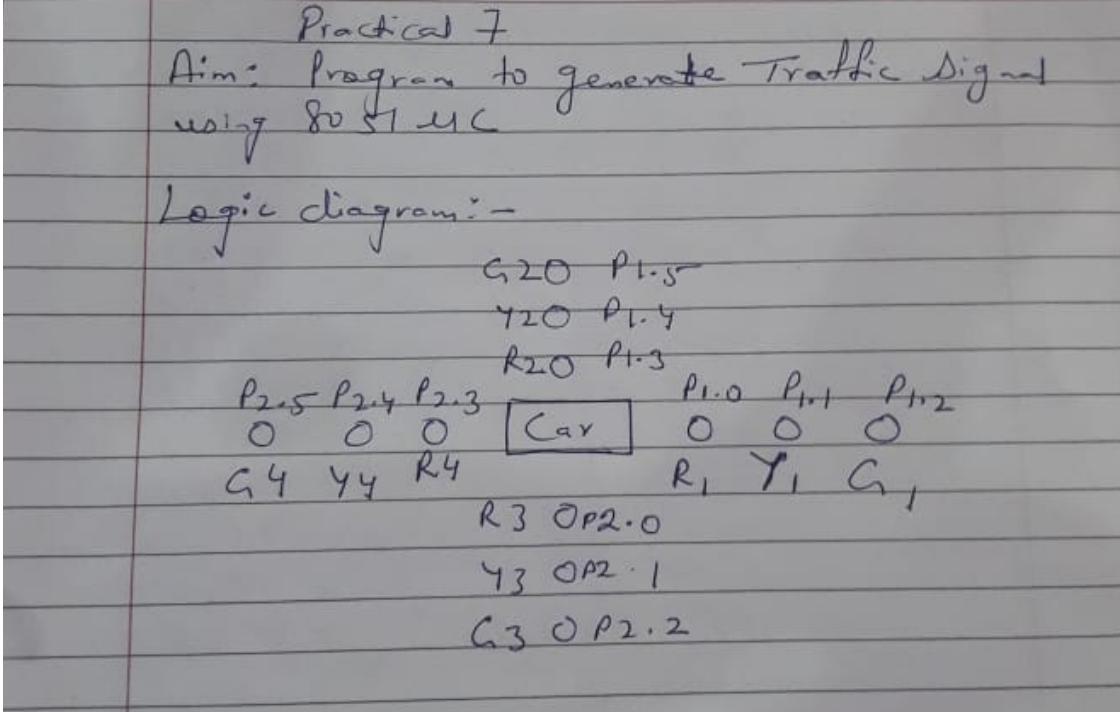 Practical 7
Aim: Program to generate Traffic Signal
using 8051 μC
Logic diagram:-
G2O P1.5
Y2O P1.4
R2O P1.3
P2.5 P2.4 P2.3 P1.0 P1.1 P1.2
O O O Car O O O
G4 Y4 R4 R1 Y1 G1
R3 O P2.0
Y3 O P2.1
G3 O P2.2